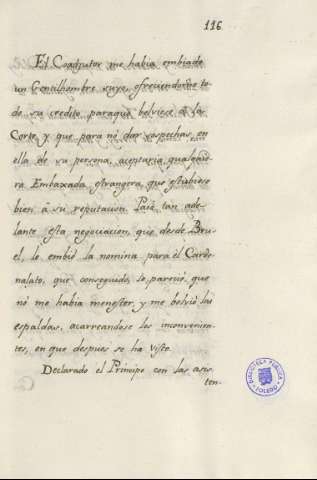 116
El Coadjutor me habia embiado
un Gentilhombre suyo, ofreciendome to-
do su credito, paraque belviese á la
Corte, y que para no dar sospechas en
ella de su persona, aceptaria qualquie-
ra Embaxada estrangera, que estubiese
bien á su reputacion. Pasó tan ade-
lante esta negociacion, que desde Bru-
el, le embió la nomina para el Carde-
nalato, que conseguido, le pareció, que
nó me habia menester, y me belvió las
espaldas, acarreandose los inconvenien-
tes, en que despues se ha visto.
Declarado el Principe con las asis-
ten-
BIBLIOTECA PUBLICA
TOLEDO